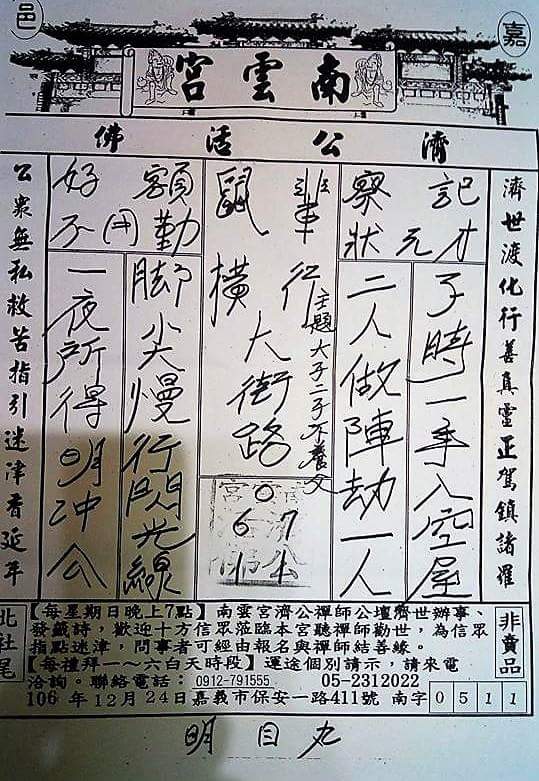 嘉邑
南雲宮
濟公活佛
濟世渡化行善真靈正駕鎮諸羅
記察
才元狀
子時一手入空屋
二人做陣劫一人
輩鼠
行橫
大街路
主題大子二子不養父
0
67
1
額好
勤用不
脚尖慢行閃光線
一夜所得明沖公
公眾無私救苦指引迷津香延年
北社尾
【每星期日晚上7點】南雲宮濟公禪師公壇濟世辦事、
發籤詩，歡迎十方信眾蒞臨本宮聽禪師勸世，為信眾
指點迷津，問事者可經由報名與禪師結善緣。
【每禮拜一～六白天時段】運途個別請示，請來電
洽詢。聯絡電話：0912-791555 05-2312022
106 年12月24日嘉義市保安一路411號 南字 0511
非賣品
明目丸